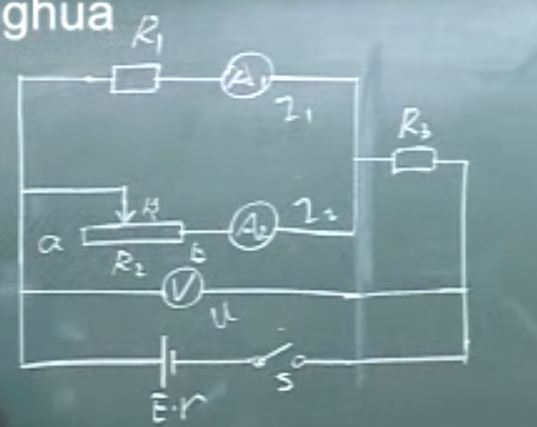 ghua
R₁
A₁
I₁
R₃
a
P
R₂
b
A₂
I₂
V
U
E.r
S